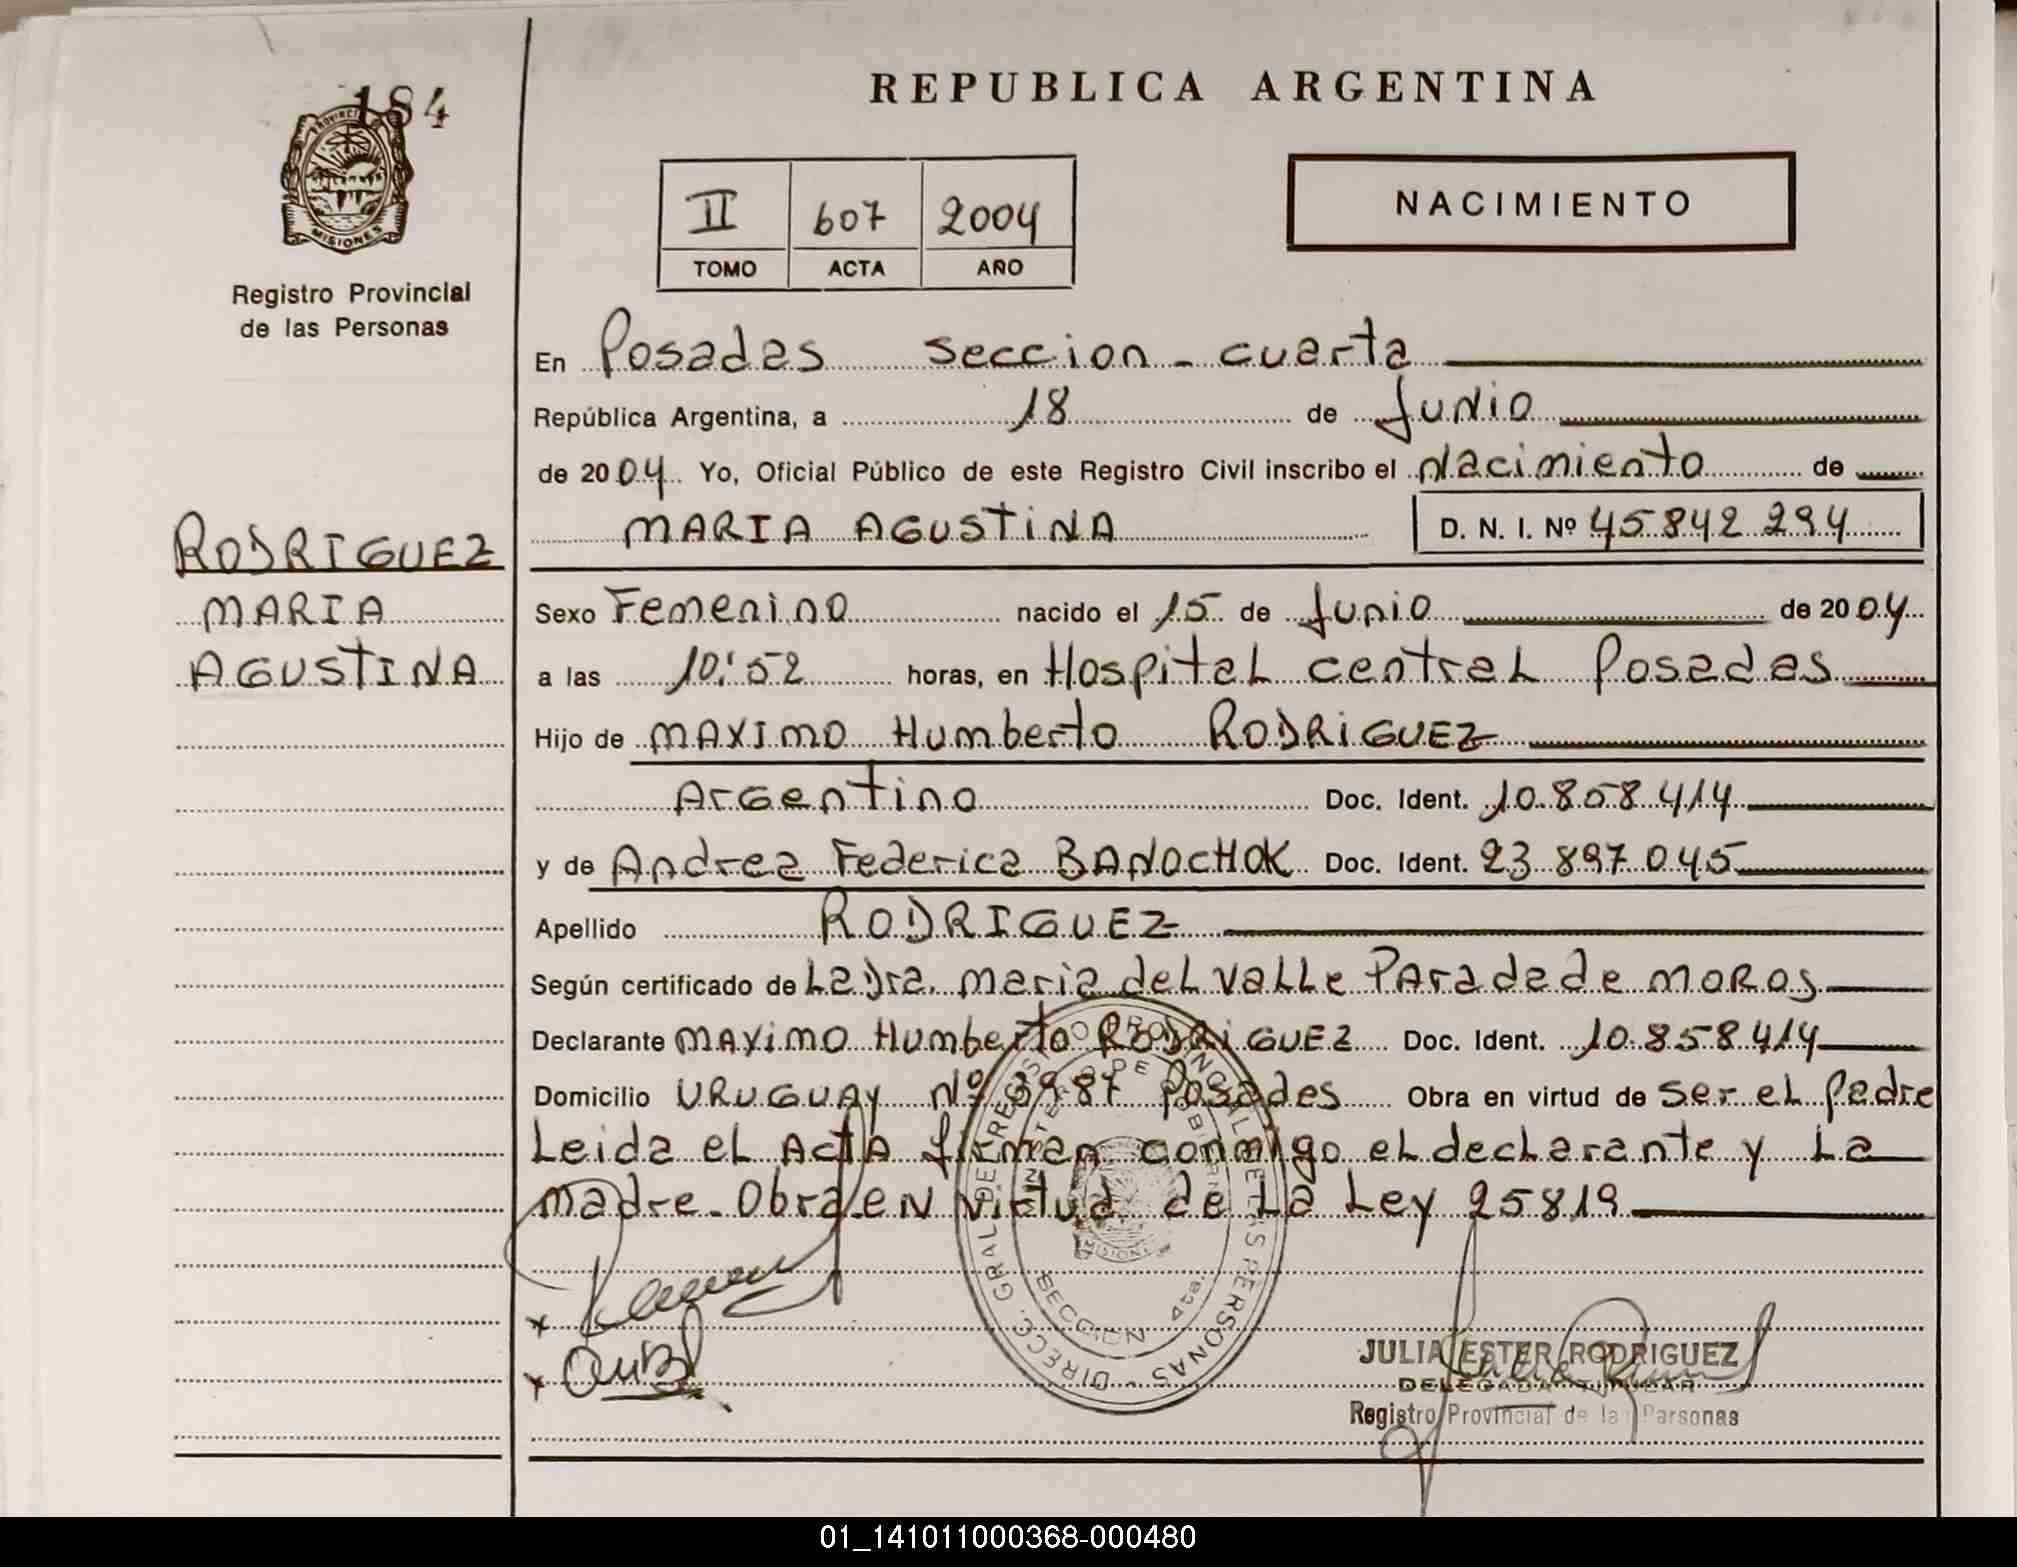 184
PROVINCIA
MISIONES
Registro Provincial
de las Personas
RODRIGUEZ
MARIA
AGUSTINA
REPUBLICA ARGENTINA
II 607 2004
TOMO ACTA AÑO
NACIMIENTO
En Posadas seccion - cuarta
República Argentina, a 18 de Junio
de 2004 Yo, Oficial Público de este Registro Civil inscribo el Nacimiento de
MARIA AGUSTINA D. N. I. Nº 45.842.294
Sexo Femenino nacido el 15 de Junio de 2004
a las 10:52 horas, en Hospital central Posadas
Hijo de MAXIMO Humberto RODRIGUEZ
Argentino Doc. Ident. 10.858.414
y de Andrea Federica BANOCHOK Doc. Ident. 23.897.045
Apellido RODRIGUEZ
Según certificado de La Dra. maria del valle PArada de MOROS
Declarante MAXIMO Humberto RODRIGUEZ Doc. Ident. 10.858.414
Domicilio URUGUAY Nº 3987 Posadas Obra en virtud de ser el padre
Leida el ActA firman conmigo el declarante y La
madre. Obra en virtud de La Ley 25819
DIRECC. GRAL. DE REGISTRO PROVINCIAL DE LAS PERSONAS
MINISTERIO DE GOBIERNO
MISIONES
SECCION 4ta.
JULIA ESTER RODRIGUEZ
DELEGADA TITULAR
Registro Provincial de las Personas
01_141011000368-000480